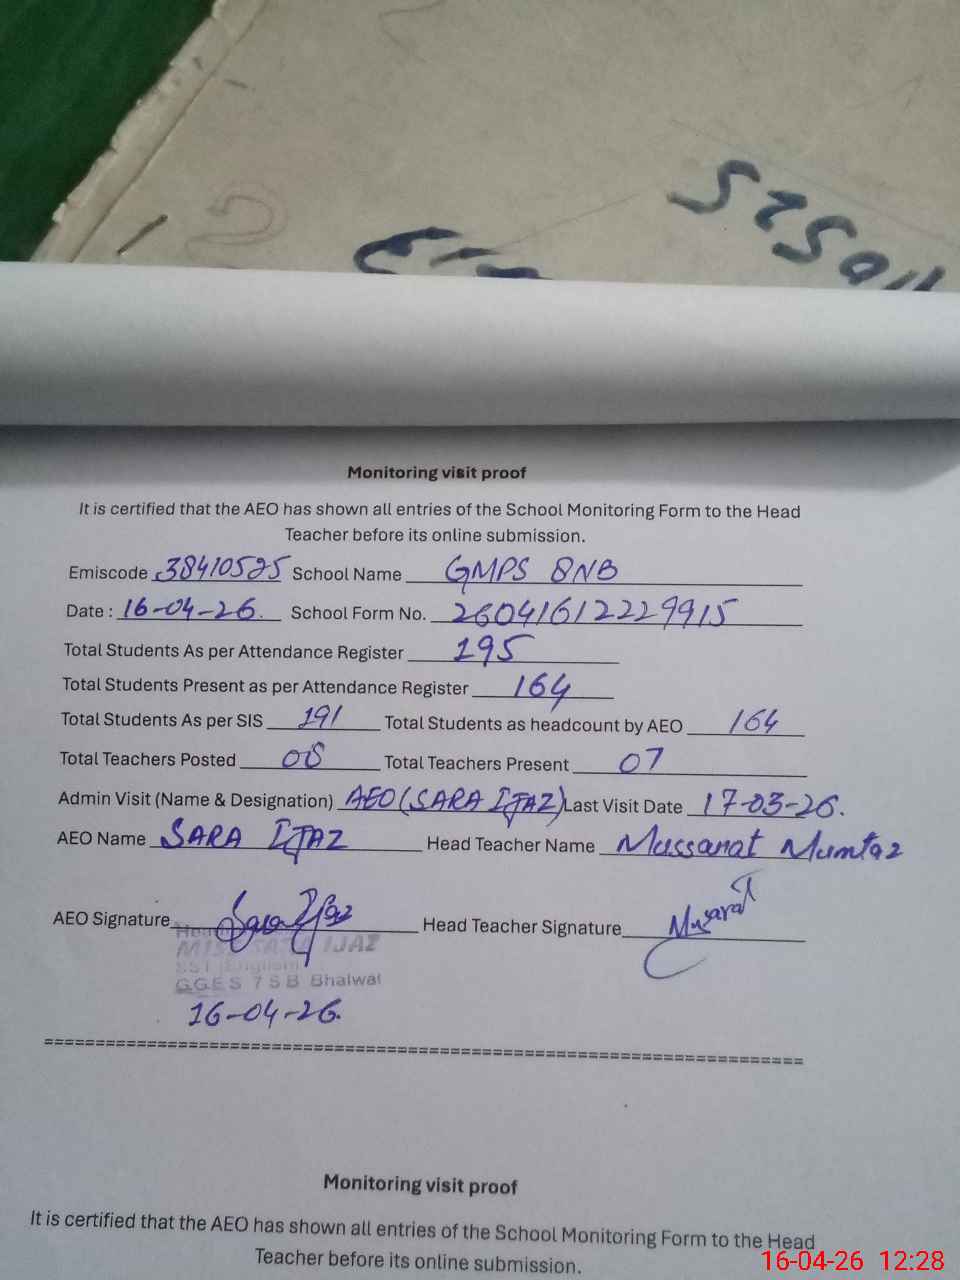 Monitoring visit proof
It is certified that the AEO has shown all entries of the School Monitoring Form to the Head
Teacher before its online submission.
Emiscode 38410525 School Name GMPS 8NB
Date : 16-04-26. School Form No. 26041612229915
Total Students As per Attendance Register 195
Total Students Present as per Attendance Register 164
Total Students As per SIS 191 Total Students as headcount by AEO 164
Total Teachers Posted 08 Total Teachers Present 07
Admin Visit (Name & Designation) AEO (SARA IJAZ) Last Visit Date 17-03-26.
AEO Name SARA IJAZ Head Teacher Name Mussarat Mumtaz
AEO Signature Sara Ijaz Head Teacher Signature Musarat
MISS SARA IJAZ
SST (English)
GGES 7 SB Bhalwal
16-04-26.
Monitoring visit proof
It is certified that the AEO has shown all entries of the School Monitoring Form to the Head
Teacher before its online submission.
16-04-26 12:28